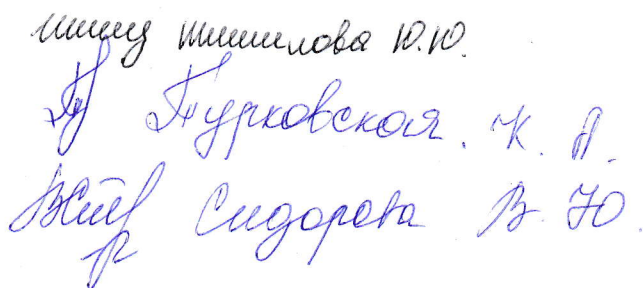 Шишилова Ю.Ю.
Турковская. К. П.
Сидорова В. Ю.